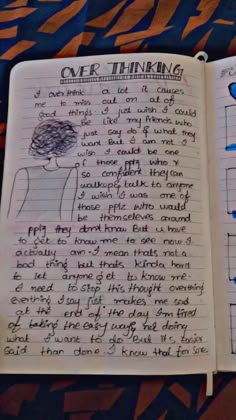 OVER THINKING
I overthink a lot it causes
me to miss out on alot of
good things. I just wish I could
be like my friends who
just say do & what they
want But I am not I
wish I could be one
of those pplz who r
so confident they can
walkup & talk to anyone
I wish I was one of
those pplz who would
be themselves around
pplz they dont know But u have
to get to know me to see how I
actually am. I mean thats not a
bad thing but thats kinda hard
to let anyone get to know me.
I need to stop this thought overthing
everthing I say just makes me sad
at the end of the day I'm tired
of taking the easy ways not doing
what I want to do. But its easier
said than done I know that for sure